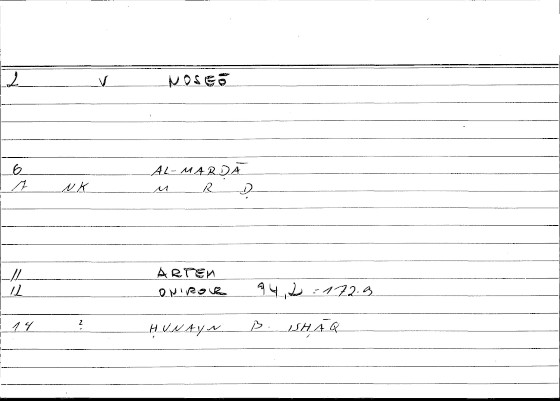 2 V NOSEŌ
6 AL-MARḌĀ
7 NK M R Ḍ
11 ARTEM
12 ONIROCR 94,2 = 172.9
14 ? ḤUNAYN B. ISḤĀQ